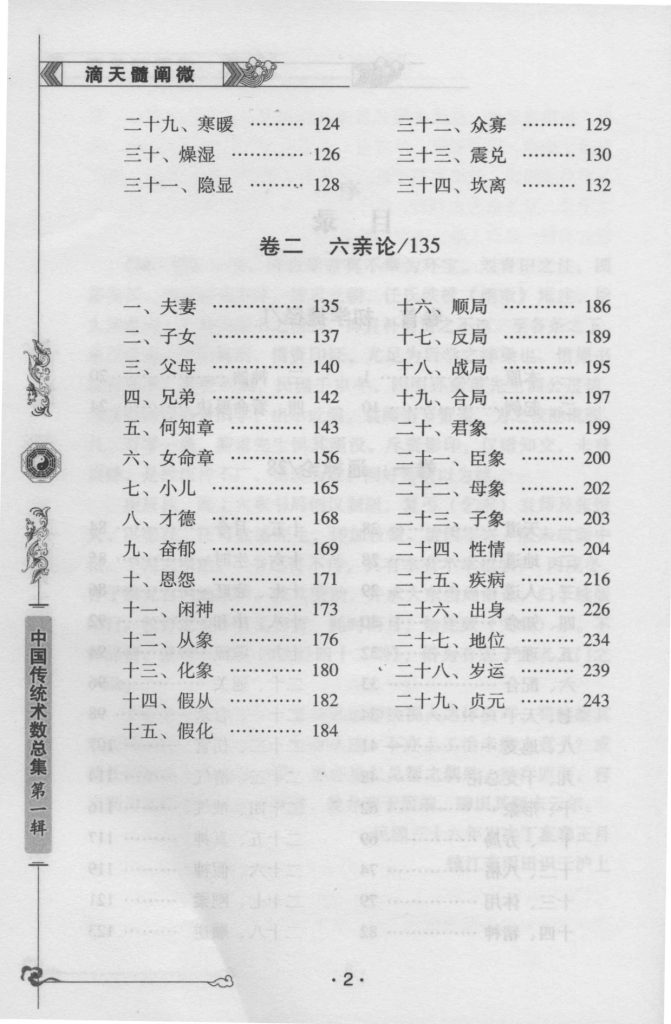 滴天髓阐微
二十九、寒暖 ……… 124
三十、燥湿 ………… 126
三十一、隐显 ……… 128
三十二、众寡 ……… 129
三十三、震兑 ……… 130
三十四、坎离 ……… 132
卷二 六亲论/135
一、夫妻 …………… 135
二、子女 …………… 137
三、父母 …………… 140
四、兄弟 …………… 142
五、何知章 ………… 143
六、女命章 ………… 156
七、小儿 …………… 165
八、才德 …………… 168
九、奋郁 …………… 169
十、恩怨 …………… 171
十一、闲神 ………… 173
十二、从象 ………… 176
十三、化象 ………… 180
十四、假从 ………… 182
十五、假化 ………… 184
十六、顺局 ………… 186
十七、反局 ………… 189
十八、战局 ………… 195
十九、合局 ………… 197
二十、君象 ………… 199
二十一、臣象 ……… 200
二十二、母象 ……… 202
二十三、子象 ……… 203
二十四、性情 ……… 204
二十五、疾病 ……… 216
二十六、出身 ……… 226
二十七、地位 ……… 234
二十八、岁运 ……… 239
二十九、贞元 ……… 243
中国传统术数总集 第一辑
· 2 ·